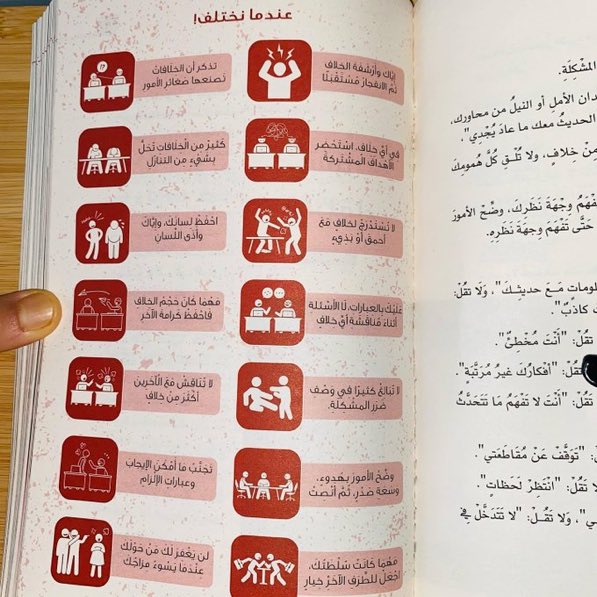 عندما نختلف!
إيّاكَ وأرْشَفَة الخلافِ
ثمَّ الانفجارَ مُسْتَقْبَلًا
تذكر أن الخلافات
تصنعها صغائر الأمور
في أيِّ خلافٍ، استَحْضِر
الأهداف المشتركة
كثيرٌ من الخلافات تُحَلُّ
بشيءٍ مِن التنازُل
لا تُسْتَدْرَجْ لخلافٍ مَعَ
أحمق أو بَذيءٍ
احْفَظْ لسانك، وإيّاكَ
وأذى اللِّسان
عَلَيْكَ بالعبارات، لا الأسئلة
أثناءَ مُناقشةِ أيِّ خلافٍ
مَهْمَا كانَ حَجْمُ الخلافِ
فاحْفَظْ كرامةَ الآخَرِ
لا تُبَالِغْ كثيرًا في وَصْفِ
ضررِ المشكلة
لا تُناقِشْ مَعَ الآخَرينَ
أكْثَرَ مِن خلافٍ
وضِّحْ الأمورَ بهدوء،
وسَعةِ صَدْرٍ، ثُمَّ أنْصِتْ
تَجَنَّبْ ما أمْكَنَ الإيجابَ
وعباراتِ الإلزامِ
مَهْمَا كانَتْ سُلْطَتُكَ،
اجْعَلْ للطَّرفِ الآخَرِ خيارٍ
لن يَغْفِرَ لكَ مَنْ حَوْلَكَ
عِنْدَما يَسُوءُ مِزاجُكَ
المشكلة.
دان الأمل أو النيل من محاورك،
الحديثُ معك ما عادَ يُجْدِي".
مِن خلاف، ولا تُلْقِ كُلَّ هُمومِكَ
فْهَمُ وِجْهَةَ نَظَرِكَ، وضِّح الأمورَ
حَتَّى تَفْهَمَ وِجهةَ نظرِه.
لومات مَعَ حديثِكَ"، وَلا تَقُل:
كاذِبٌ".
تقُلْ: "أنْتَ مُخْطِئٌ".
تقُلْ: "أفكارُكَ غيرُ مُرَتَّبةٍ".
تقُلْ: "أنت لا تَفْهَمُ ما تَتَحَدَّثُ
تقُلْ: "توقَّفْ عَنْ مُقاطَعتي".
لا تَقُلْ: "انتَظِرْ لحظات".
ي"، وَلا تَقُلْ: "لا تَتَدَخَّل في